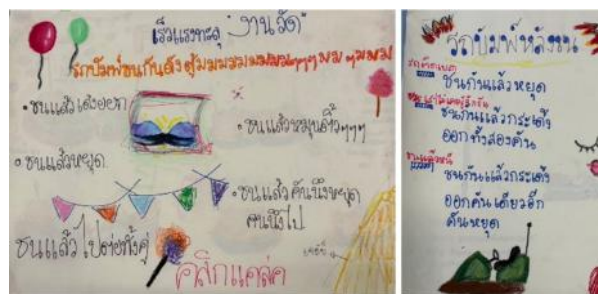 เร็วแรงทะลุ "งานวัด"
รถบัมพ์ชนกันดังตู้มมมมมมมมมมๆๆๆมมๆมมม
• ชนแล้วเด้งออก
• ชนแล้วหมุนติ้วๆๆๆ
• ชนแล้วหยุด
• ชนแล้วคันนึงหยุด
คนนึงไป
ชนแล้วไปต่อทั้งคู่
คลิกแคล่ค
รถบัมพ์หลังชน
ชนกันแล้วหยุด
ชนกันแล้วกระเด็ง
ออกทั้งสองคัน
ชนแล้วหนี
ชนกันแล้วกระเด็ง
ออกคันเดียวอีก
คันหยุด